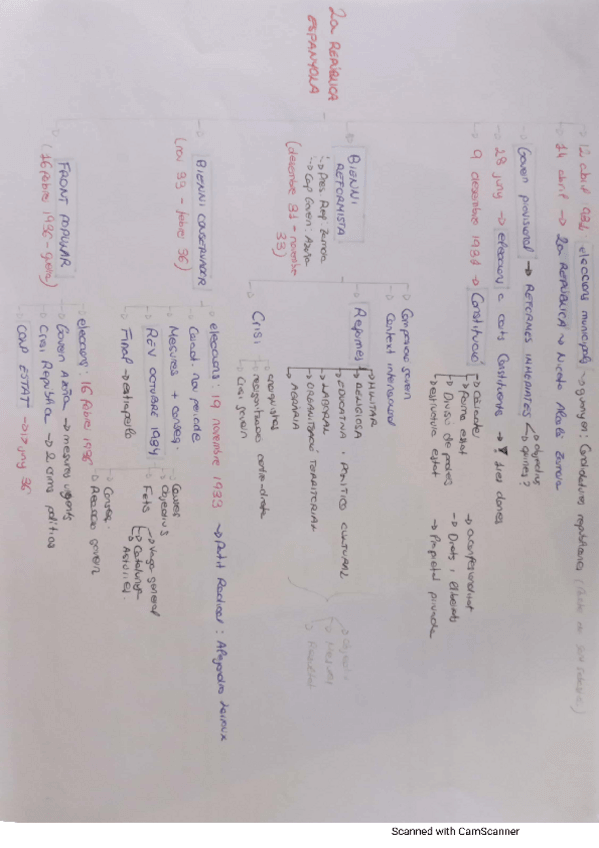 2a REPÚBLICA
ESPANYOLA
12 abril 1931 eleccions municipals → guanyen: Candidatures republicanes
14 abril → 2a REPÚBLICA → Niceto Alcalá Zamora
Govern provisional → REFORMES IMMEDIATES
→ objectius
→ quines?
28 juny → eleccions a corts Constituents → tres dones
9 desembre 1931 → Constitució
→ objectius
→ Forma estat
→ Divisió de poders
→ estructura estat
→ aconfessionalitat
→ Drets i llibertats
→ Propietat privada
BIENNI
REFORMISTA
→ Pres. Rep: Zamora
→ Cap Govern: Azaña
(desembre 31 - novembre
33)
Composició govern
Context internacional
Reformes
→ MILITAR
→ RELIGIOSA
→ EDUCATIVA i POLÍTICO CULTURAL
→ LABORAL
→ ORGANITZACIÓ TERRITORIAL
→ AGRÀRIA
→ Objectiu
→ Mesures
Crisi
anarquistes
reorganització centre-dreta
Crisi govern
BIENNI CONSERVADOR
(nov 33 - febrer 36)
eleccions: 19 novembre 1933 → Partit Radical: Alejandro Lerroux
Caract. nou període
Mesures + conseq.
REV OCTUBRE 1934
Causes
Objectius
Fets
→ Vaga general
→ Catalunya
→ Astúries
Conseq.
Final → estraperlo
FRONT POPULAR
(16 febrer 1936 - guerra)
eleccions: 16 febrer 1936
Govern Azaña → mesures urgents
→ Reacció govern
Crisi República → 2 crims polítics
COP ESTAT → 17 juny 36
Scanned with CamScanner